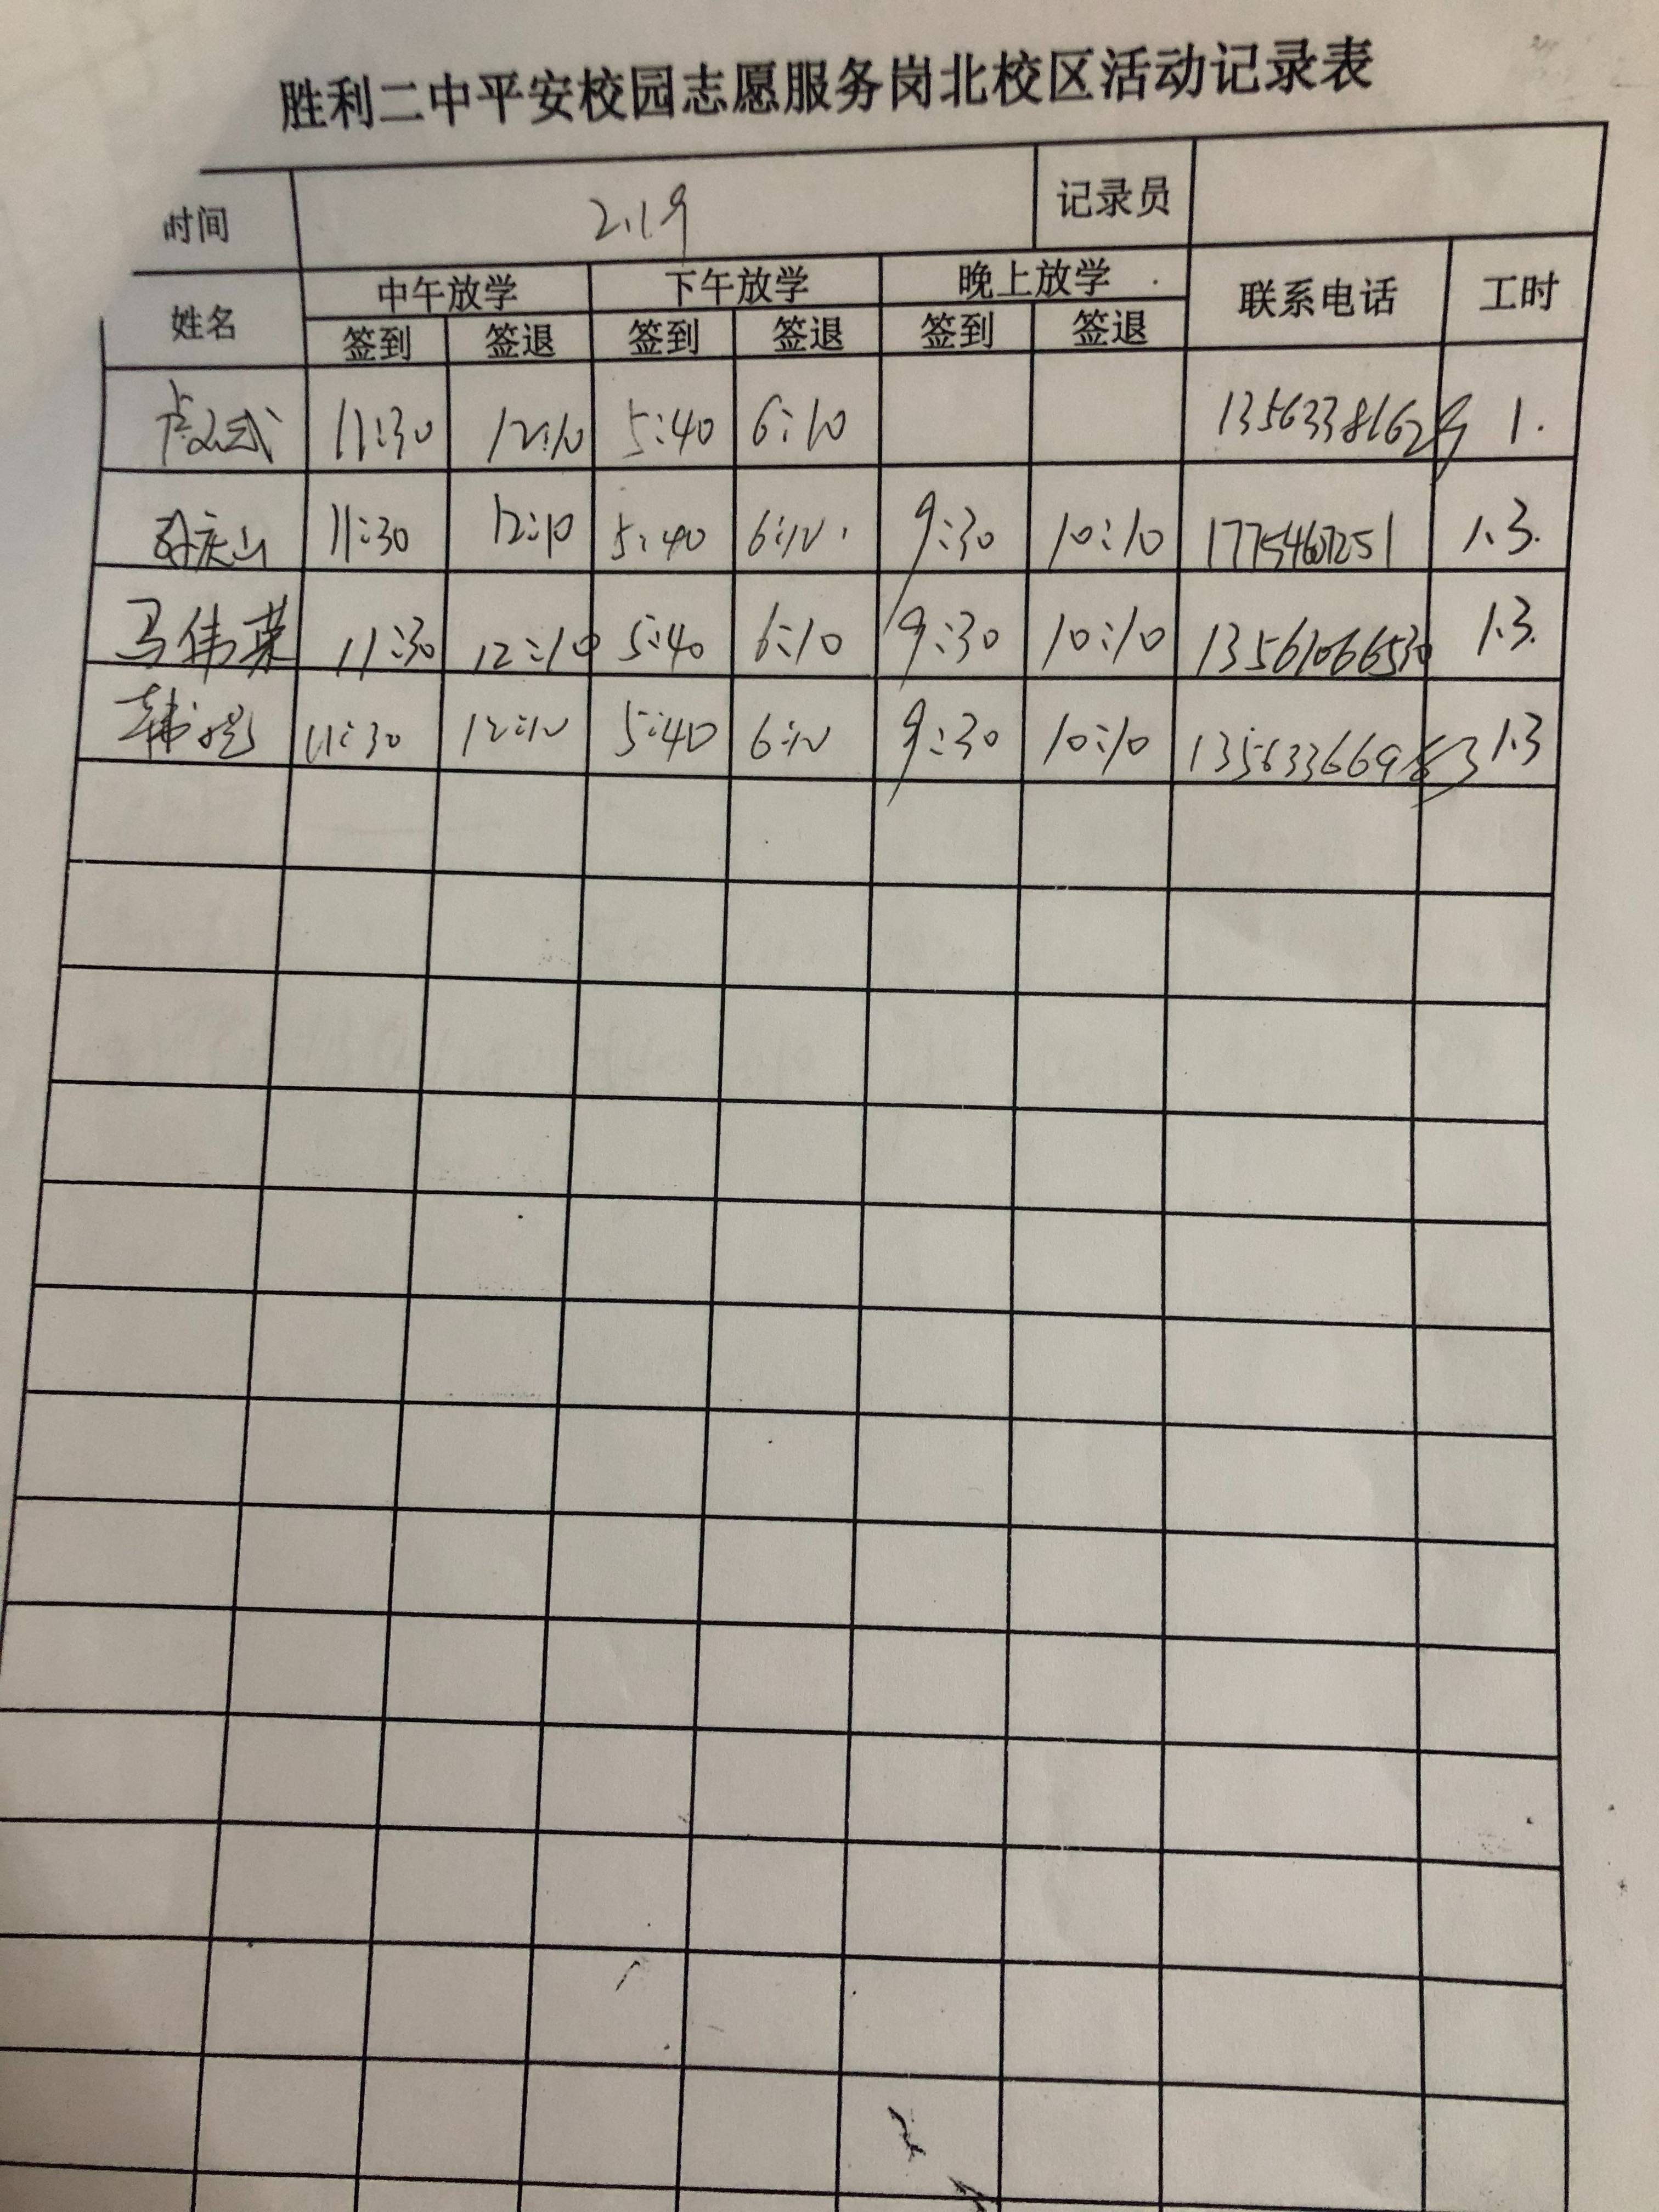 胜利二中平安校园志愿服务岗北校区活动记录表
时间 2.19 记录员
姓名 中午放学 下午放学 晚上放学 联系电话 工时
签到 签退 签到 签退 签到 签退
11:30 12:10 5:40 6:10 13563381629 1.
11:30 12:10 5:40 6:10 9:30 10:10 17754607251 1.3.
马伟荣 11:30 12:10 5:40 6:10 9:30 10:10 13561066530 1.3.
11:30 12:10 5:40 6:10 9:30 10:10 1.3